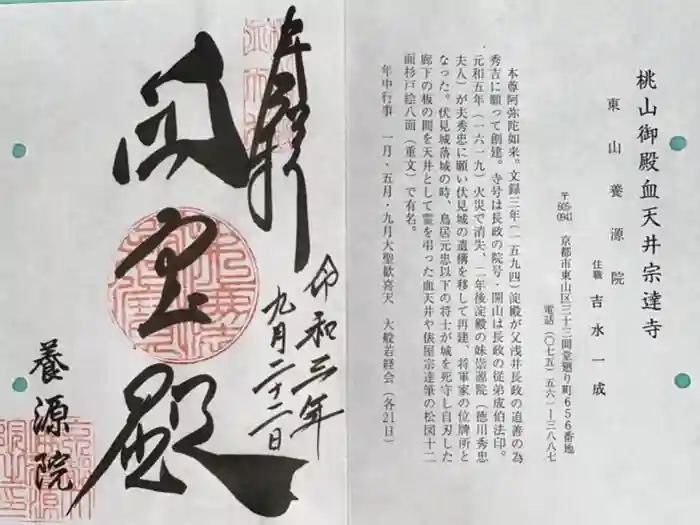 桃山御殿血天井宗達寺
東山養源院
住職 吉水一成
〒605-0941 京都市東山区三十三間堂廻り町656番地
電話(〇七五)五六一―三八八七
本尊阿弥陀如来。文録三年(一五九四)淀殿が父浅井長政の追善の為
秀吉に願って創建。寺号は長政の院号・開山は長政の従弟成伯法印。
元和五年(一六一九)火災で消失、二年後淀殿の妹崇源院(徳川秀忠
夫人)が夫秀忠に願い伏見城の遺構を移して再建、将軍家の位牌所と
なった。伏見城落城の時、鳥居元忠以下の将士が城を死守し自刃した
廊下の板の間を天井として霊を弔った血天井や俵屋宗達筆の松図十二
面杉戸絵八面(重文)で有名。
年中行事 一月・五月・九月大聖歓喜天 大般若経会(各21日)
令和三年
九月二十二日
養源院